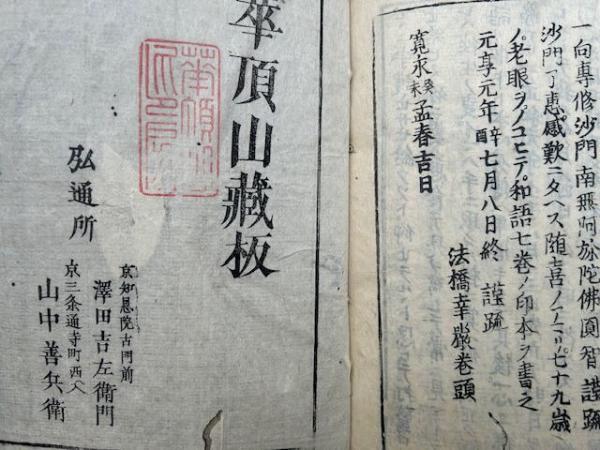 一向專修沙門南無阿弥陀佛圓智謹䟽
沙門了惠感歎ニタヘス随喜ノアマリ七十九歳
ノ老眼ヲノコヒテ和語七巻ノ印本ヲ書之
元亨元年辛酉七月八日終 謹䟽
法橋幸嚴巻頭
寛永癸未孟春吉日
華頂山藏板
弘通所
京知恩院古門前
澤田吉左衛門
京三条通寺町西入
山中善兵衛